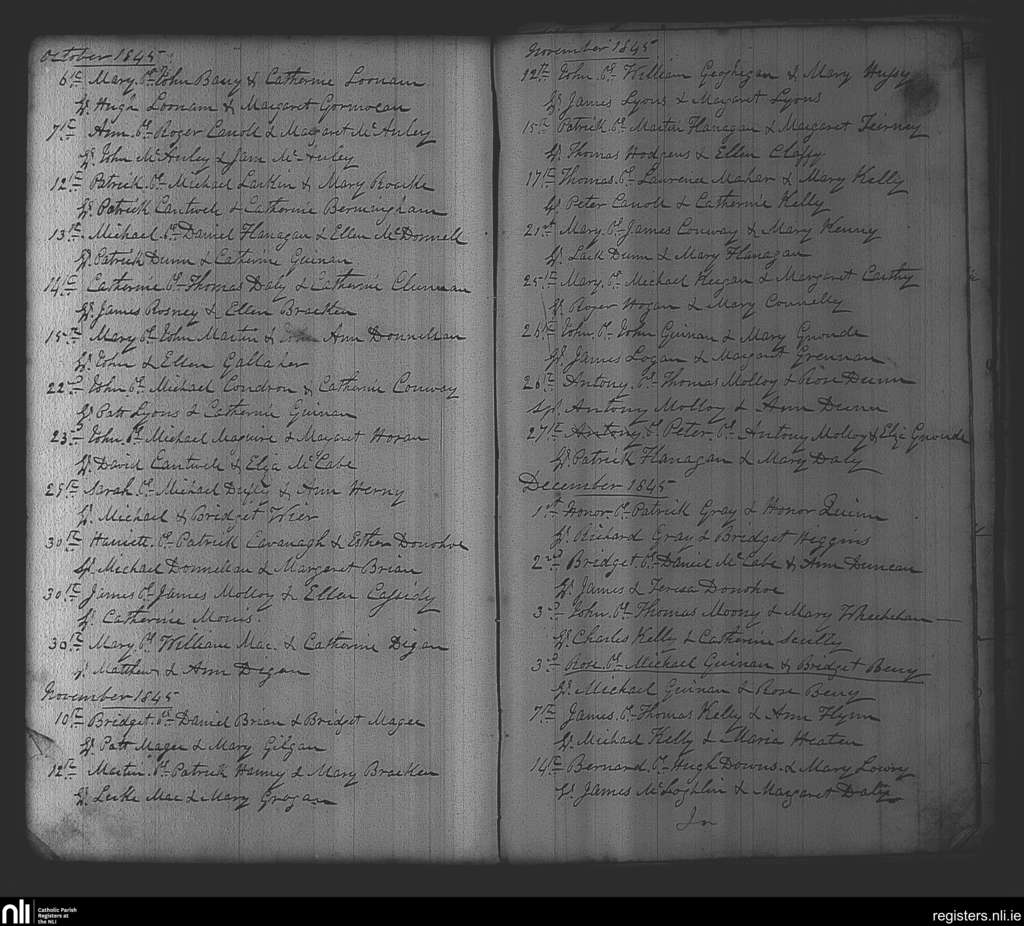 October 1845
6th Mary. Of John Barry & Catherine Loonam
Sp. Hugh Loonam & Margaret Gormolan
7th Ann. Of Roger Carroll & Margaret McAuley
Sp. John McAuley & Jane McAuley
12th Patrick. Of Michael Larkin & Mary Rourke
Sp. Patrick Cantwell & Catherine Bermingham
13th Michael. Of Daniel Flanagan & Ellen McDonnell
Sp. Patrick Dunn & Catherine Guinan
14th Catherine Of Thomas Daly & Catherine
Sp. James Rosney & Ellen Bracken
15th Mary Of John Martin & Ann Donnellan
Sp. John & Ellen Gallaher
22nd John Of Michael Condron & Catherine Conway
Sp. Patt Lyons & Catherine Guinan
23rd John. Of Michael Maguire & Margaret Horan
Sp. David Cantwell & Eliza McCabe
29th Sarah Of Michael Dufley & Ann Herny
Sp. Michael & Bridget Wier
30th Harriett. Of Patrick Cavanagh & Esther Donohoe
Sp. Michael Donnellan & Margaret Brian
30th James Of James Molloy & Ellen Cassidy
Sp. Catherine Morris.
30th Mary. Of William Mac. & Catherine Digan
Sp. Matthew & Ann Degan
November 1845
10th Bridget. Of Daniel Brian & Bridget Magee
Sp. Patt Magee & Mary Gilgan
12th Martin. Of Patrick Hanny & Mary Bracken
Sp. Luke Mac & Mary Grogan
November 1845
12th John Of William Geoghegan & Mary Hussy
Sp. James Lyons & Margaret Lyons
15th Patrick Of Martin Flanagan & Margaret Tierney
Sp. Thomas Hodgens & Ellen Claffy
17th Thomas. Of Laurence Mahar & Mary Kelly
Sp. Peter Carroll & Catherine Kelly
21st Mary. Of James Conway & Mary Kenny
Sp. Lack Dunn & Mary Flanagan
25th Mary. Of Michael Keegan & Margaret Carthy
Sp. Roger Hogan & Mary Connelly
26th John. Of John Guinan & Mary Gnoude
Sp. James Logan & Margaret Grennan
26th Antony. Of Thomas Molloy & Rose Dunn
Sp. Antony Molloy & Ann Dunn
27th Antony. Of Peter. Of Antony Molloy & Eliza Gnoude
Sp. Patrick Flanagan & Mary Daly
December 1845
1st Honor. Of Patrick Gray & Honor Quinn
Sp. Richard Gray & Bridget Higgins
2nd Bridget. Of Daniel McCabe & Ann Duncan
Sp. James & Teresa Donohoe
3rd John. Of Thomas Moony & Mary Wheelehan
Sp. Charles Kelly & Catherine Scully
3rd Rose. Of Michael Guinan & Bridget Berry
Sp. Michael Guinan & Rose Berry
7th James. Of Thomas Kelly & Ann Flynn
Sp. Michael Kelly & Maria Heaten
14th Bernard. Of Hugh Downs. & Mary Lowry
Sp. James McLoghlin & Margaret Daly
In
nli
Catholic Parish
Registers at
the NLI
registers.nli.ie